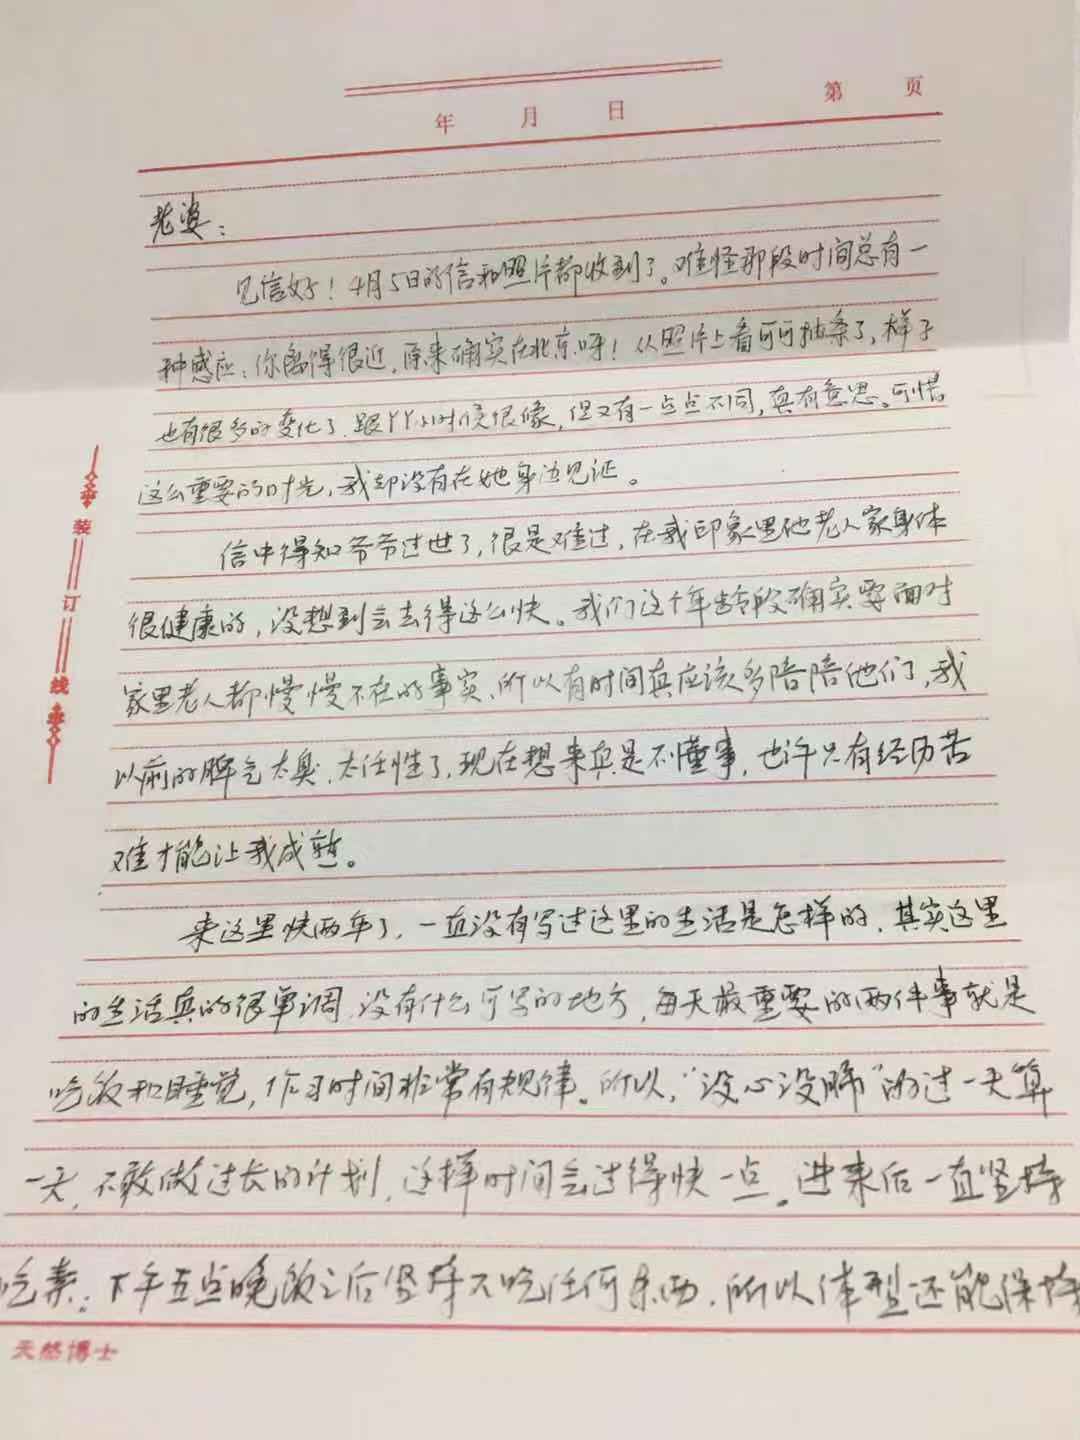 年 月 日 第 页
老婆：
见信好！4月5日的信和照片都收到了。难怪那段时间总有一
种感应：你离得很近，原来确实在北京呀！从照片上看可可抽条了，样子
也有很多的变化了，跟丫丫小时候很像，但又有一点点不同，真有意思。可惜
这么重要的时光，我却没有在她身边见证。
信中得知爷爷过世了，很是难过，在我印象里他老人家身体
很健康的，没想到会去得这么快。我们这个年龄段确实要面对
家里老人都慢慢不在的事实，所以有时间真应该多陪陪他们了，我
以前的脾气太臭，太任性了，现在想来真是不懂事，也许只有经历苦
难才能让我成熟。
来这里快两年了，一直没有写过这里的生活是怎样的，其实这里
的生活真的很单调，没有什么可写的地方，每天最重要的两件事就是
吃饭和睡觉，作习时间非常有规律。所以，“没心没肺”的过一天算
一天，不敢做过长的计划，这样时间会过得快一点。进来后一直坚持
吃素；下午五点晚饭之后坚持不吃任何东西，所以体型还能保持
装订线
天然博士